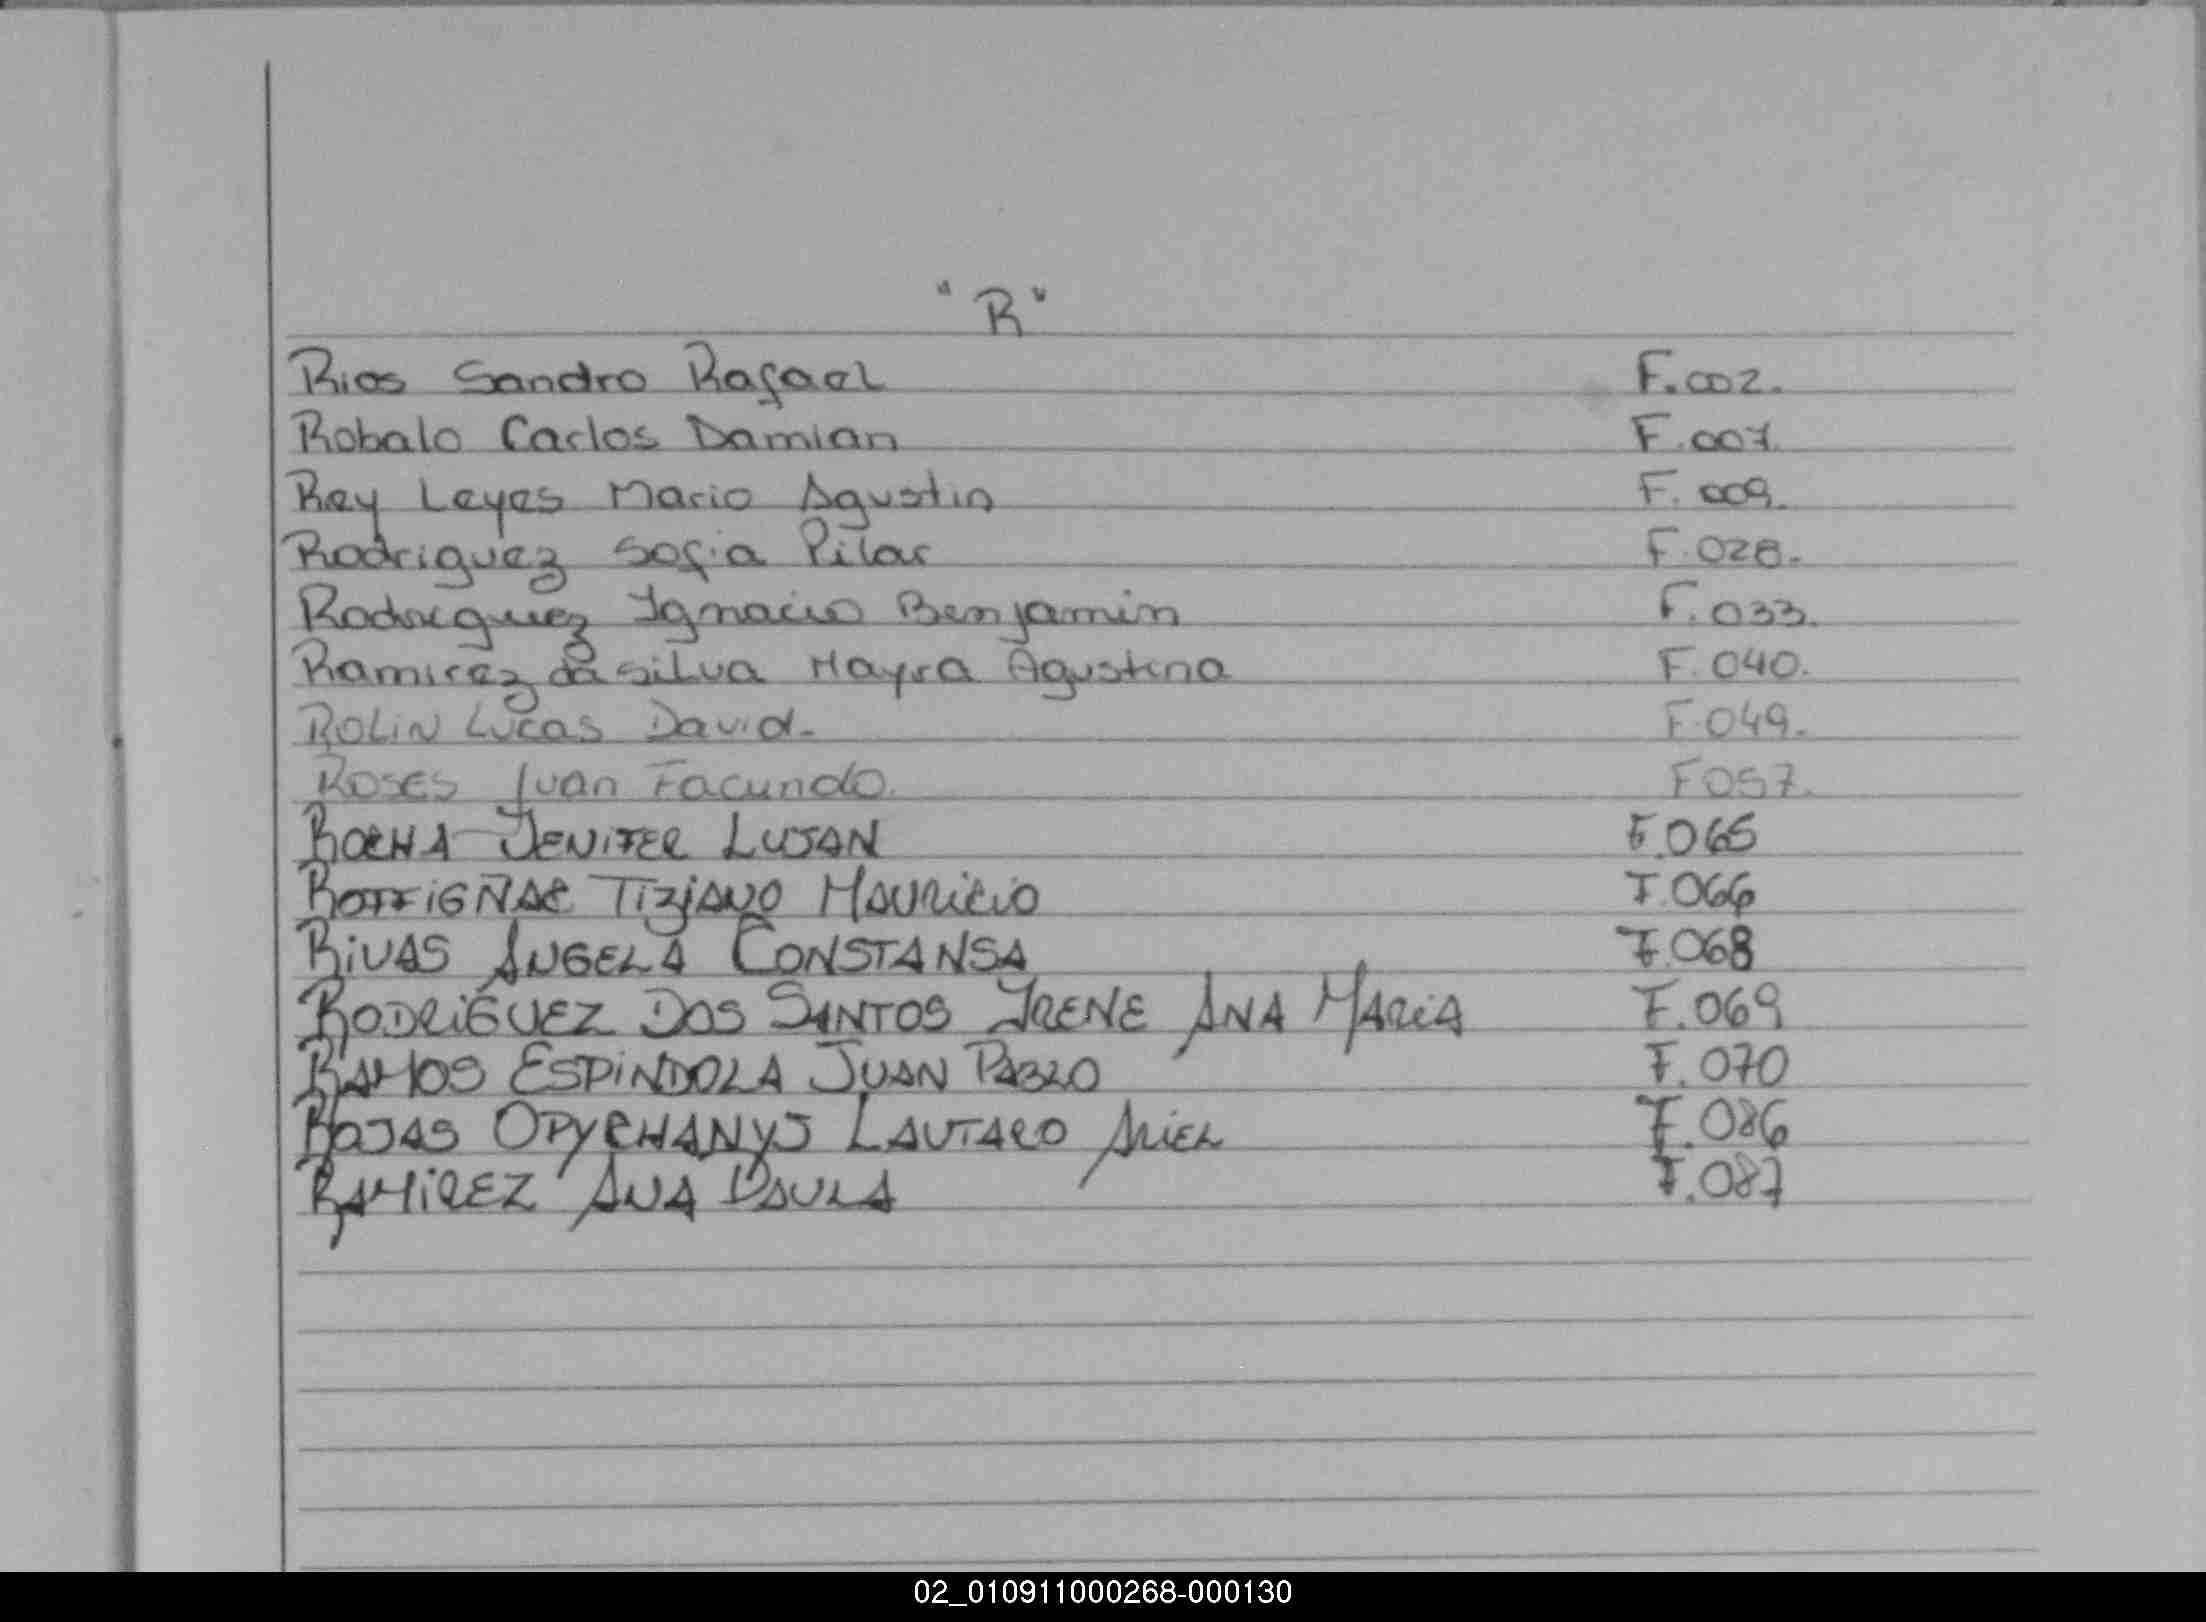 "R"
Rios Sandro Rafael F.002.
Robalo Carlos Damian F.007.
Rey Leyes Mario Agustin F.009.
Rodriguez Sofia Pilar F.028.
Rodriguez Ignacio Benjamin F.033.
Ramirez da silva Mayra Agustina F.040.
ROLIN Lucas David. F.049.
ROSES Juan Facundo. F057.
ROCHA JENIFER LUJAN F.065
ROFFIGÑAC TIZIANO MAURICIO F.066
RIVAS ANGELA CONSTANSA F.068
RODRIGUEZ DOS SANTOS IRENE ANA MARIA F.069
RAMOS ESPINDOLA JUAN PABLO F.070
ROJAS OPYCHANYJ LAUTARO ARIEL F.086
RAMIREZ ANA PAULA F.087
02_010911000268-000130